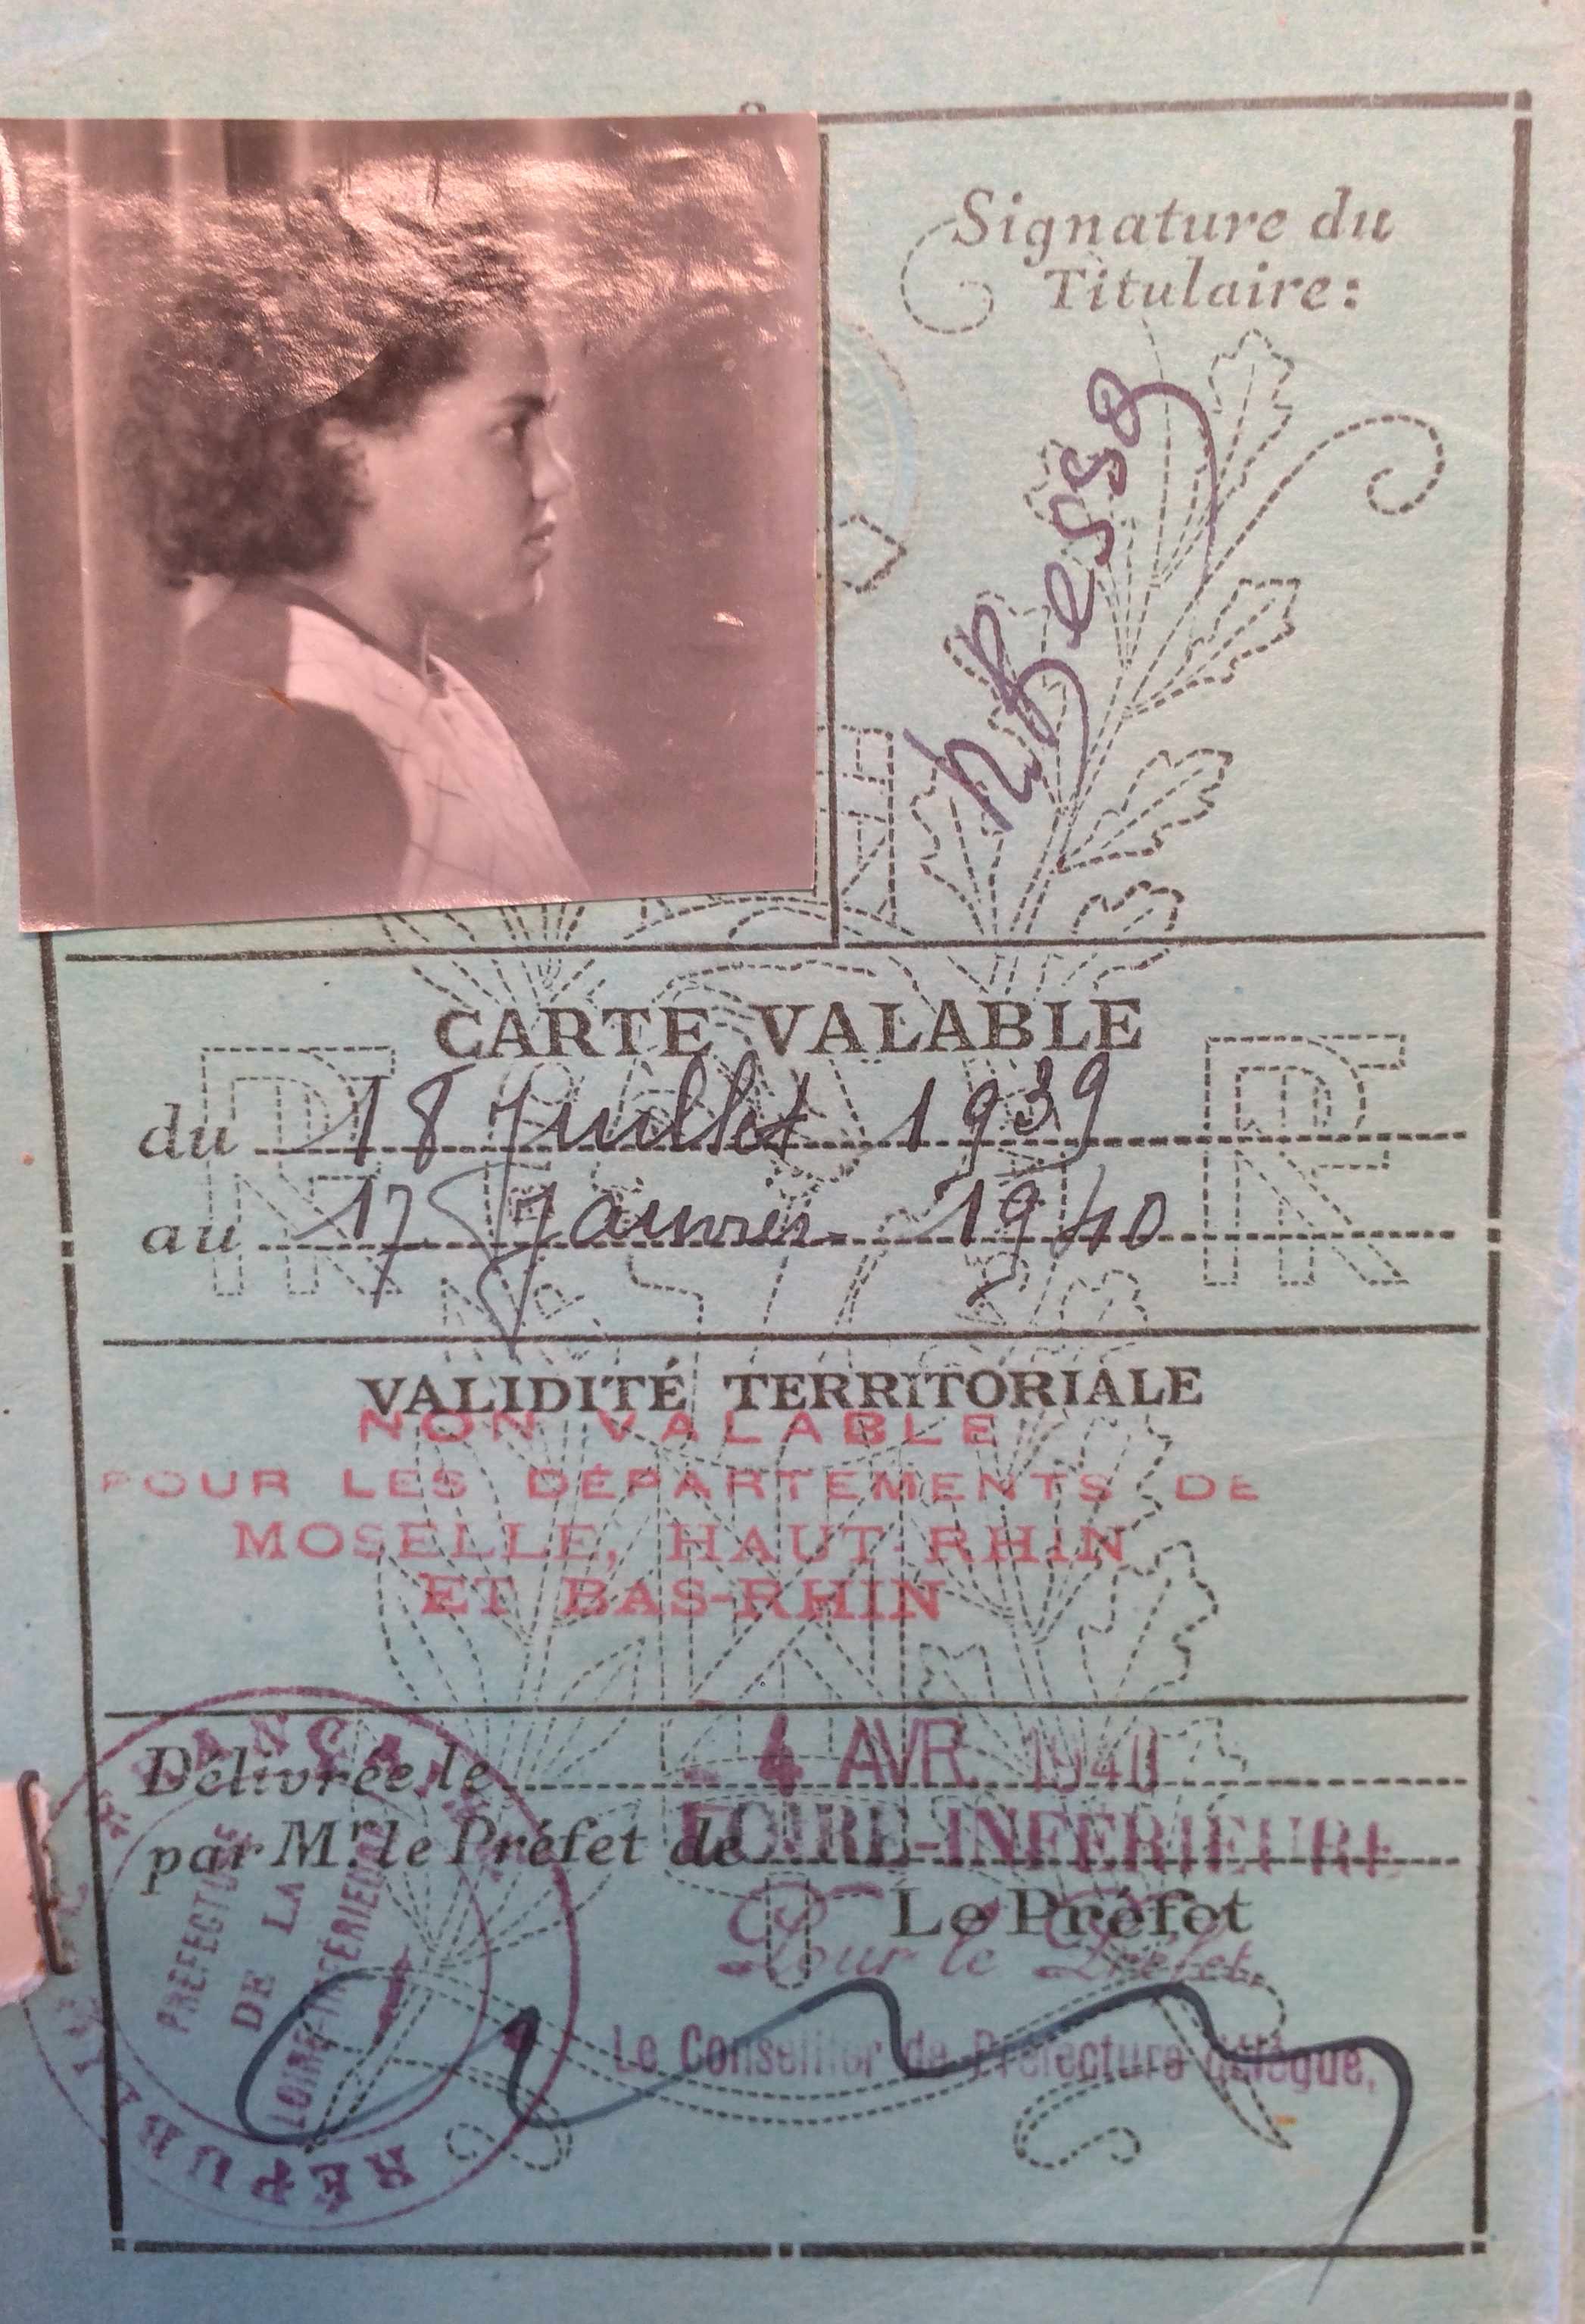 Signature du
Titulaire:
CARTE VALABLE
du 18 Juillet 1939
au 17 Janvier 1940
VALIDITÉ TERRITORIALE
NON VALABLE
POUR LES DÉPARTEMENTS DE
MOSELLE, HAUT-RHIN
ET BAS-RHIN
Délivrée le 4 AVR 1940
par Mr. le Préfet de LOIRE-INFÉRIEURE
Le Préfet
Pour le Préfet,
Le Conseiller de Préfecture délégué,
RÉPUBLIQUE FRANÇAISE
PRÉFECTURE
DE LA
LOIRE-INFÉRIEURE
RF
RF